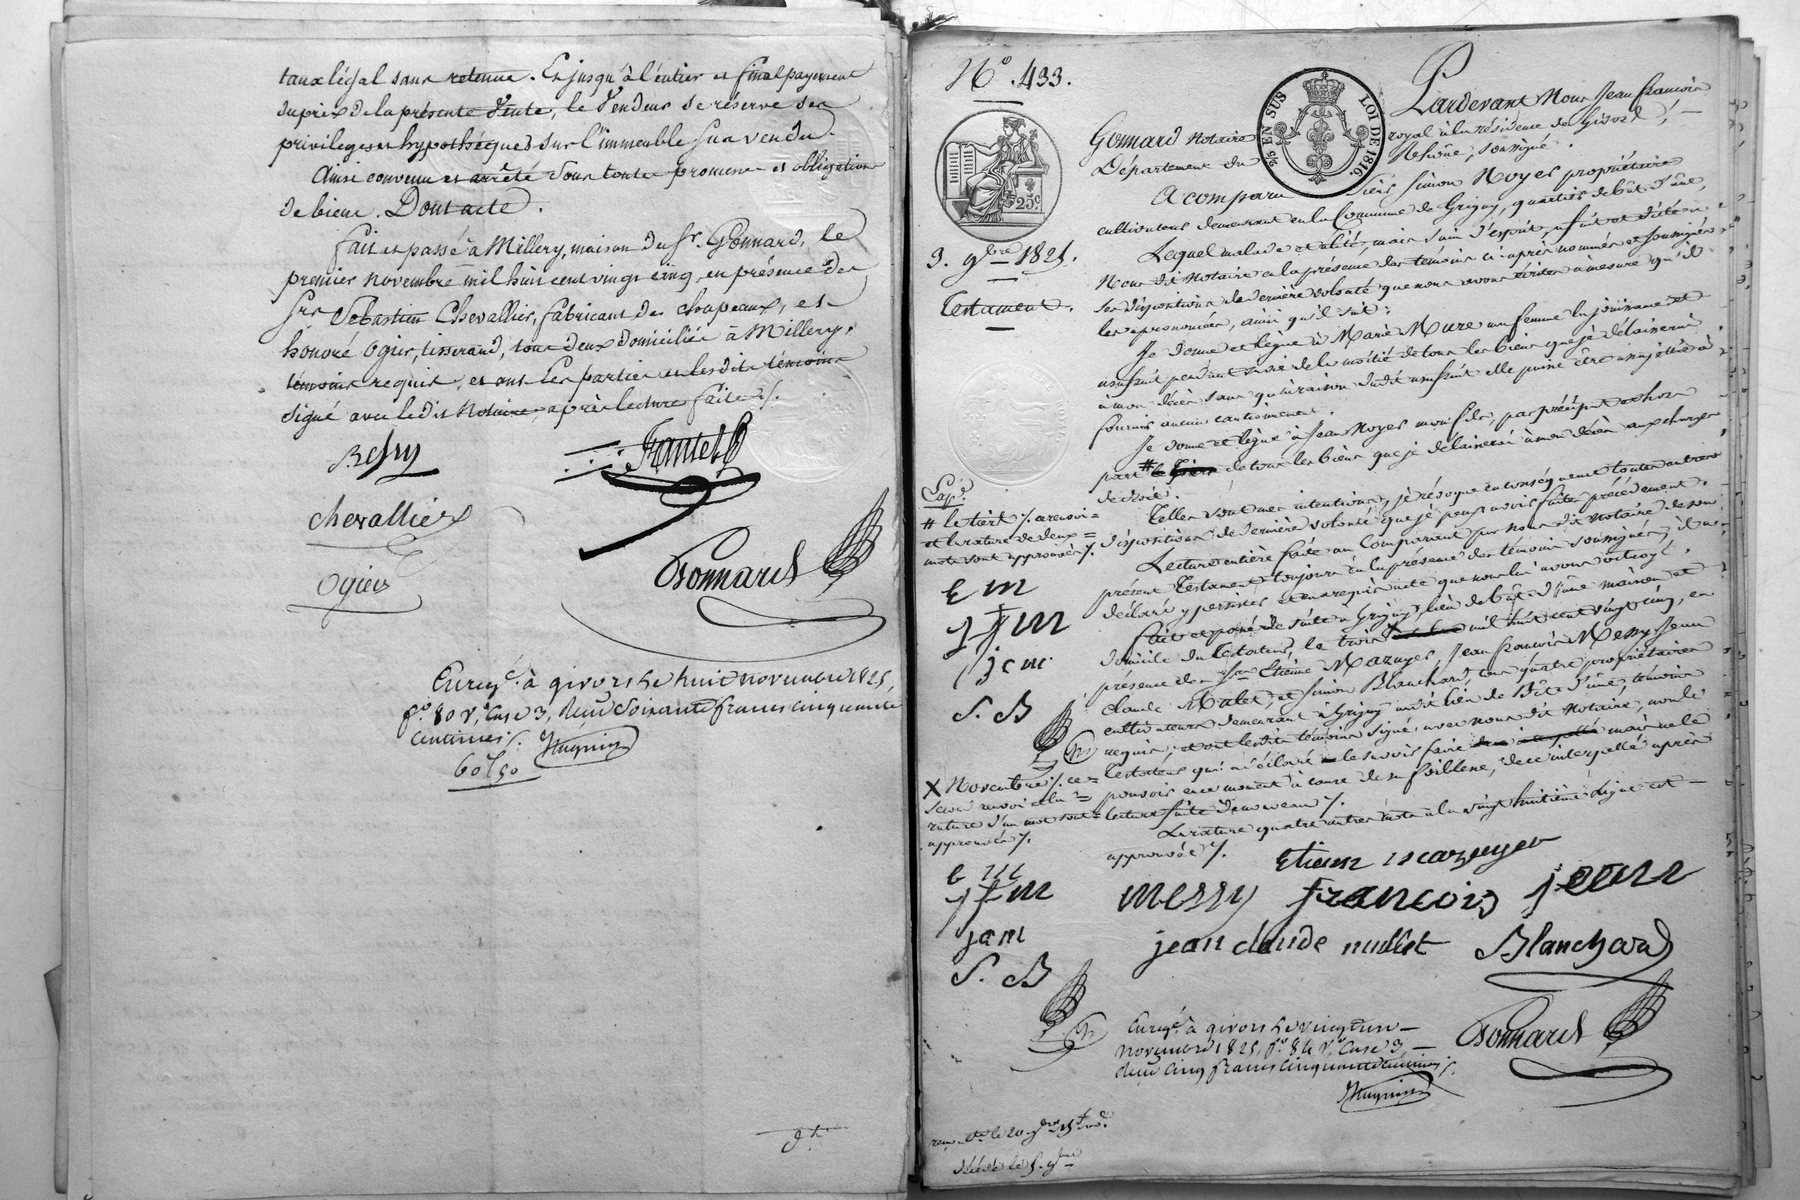 taux légal sans retenue. Et jusqu'à l'entier et final payement
du prix de la présente Vente, le Vendeur se réserve ses
privileges et hypothéques sur l'immeuble sus vendu.
Ainsi convenu et arrêté sous toutes promesses et obligation
de biens. Dont acte.
fait et passé à Millery, maison du Sr. Gonnard, le
premier novembre mil huit cent vingt cinq, en présence des
Srs Sébastien Chevallier, fabricant des chapeaux, et
honoré Ogier, tisserand, tous deux domiciliés à Millery,
témoins requis, et ont les parties et lesdits témoins
signé avec ledit Notaire après lecture faite ./.
chevallier
Ogier
Gonnard
Enregé. à givors le huit novembre 1825,
fo. 80 Vo. Case 3, reçu soixante francs cinquante
centimes.
60f50
No. 433.
25c
5/6 EN SUS
LOI DE 1816
3. 9bre 1825.
Testament.
Pardevant Nous Jean françois
Gonnard Notaire royal à la résidence de Givors,
Département du Rhône, soussigné.
A comparu Sieur Simon Noyer propriétaire
cultivateur demeurant en la Commune de Grigny, quartier de bût d'ûne,
Lequel malade et alité, mais sain d'esprit, a fait et dicté à
Nous dit Notaire en la présence des témoins ci-après nommés et soussignés
ses dispositions de dernière volonté que nous avons écrites à mesure qu'il
les a prononcées, ainsi qu'il suit:
Je donne et lègue à Marie Mure ma femme la jouissance et
usufruit pendant sa vie de la moitié de tous les biens que je délaisserai
à mon décès sans qu'à raison dudit usufruit elle puisse être assujettie à
fournir aucun cautionnement.
Je donne et lègue à Jean Noyer mon fils, par préciput et hors
part # de tous les biens que je délaisserai à mon décès aux charges
de droit.
Telles sont mes intentions, je révoque en conséquence toutes autres
dispositions de dernière volonté que je peux avoir faites précédemment.
Lecture entière faite au Comparant par Nous dit Notaire de son
présent Testament toujours en la présence des témoins soussignés, il a
déclaré y persister et en a requis acte que nous lui avons octroyé.
fait et passé de suite à Grigny, lieu de bût d'ûne, maison et
domicile du testateur, le trois X mil huit cent vingt cinq, en
présence des Srs Etienne Mazuyer, Jean françois Messy, Jean
claude Mulet, et Simon Blanchard, tous quatre propriétaires
cultivateurs demeurant à Grigny audit lieu de Bût d'ûne, témoins
requis; et ont lesdits témoins signé avec nous dit Notaire, non le
testateur qui a déclaré le savoir faire mais ne le
pouvoir en ce moment à cause de sa faiblesse, de ce interpellé après
lecture faite de nouveau ./.
La rature quatre autres mots à la vingt huitième ligne est
approuvée ./.
# le tiers ./. ce renvoi
et la rature de deux
mots sont approuvés ./.
E m
j f m
j c m
S. B
X Novembre ./. ce
second renvoi et la
rature d'un mot sont
approuvés ./.
E m
j f m
j c m
S. B
Etienne mazuyer
messy françois jean
jean claude mulet Blanchard
Gonnard
Enregé. à givors le vingt un
novembre 1825, fo. 84 Vo. Case 3
reçu cinq francs cinquante centimes.